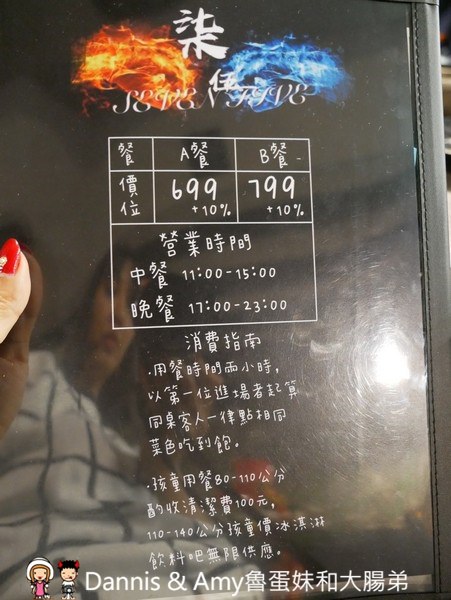 柒
伍
SEVEN FIVE
餐 A餐 B餐
價位 699 +10% 799 +10%
營業時間
中餐 11:00-15:00
晚餐 17:00-23:00
消費指南
·用餐時間兩小時,
以第一位進場者起算
同桌客人一律點相同
菜色吃到飽。
·孩童用餐80-110公分
酌收清潔費100元,
110-140公分孩童價冰淇淋
飲料吧無限供應。
Dannis & Amy魯蛋妹和大腸弟